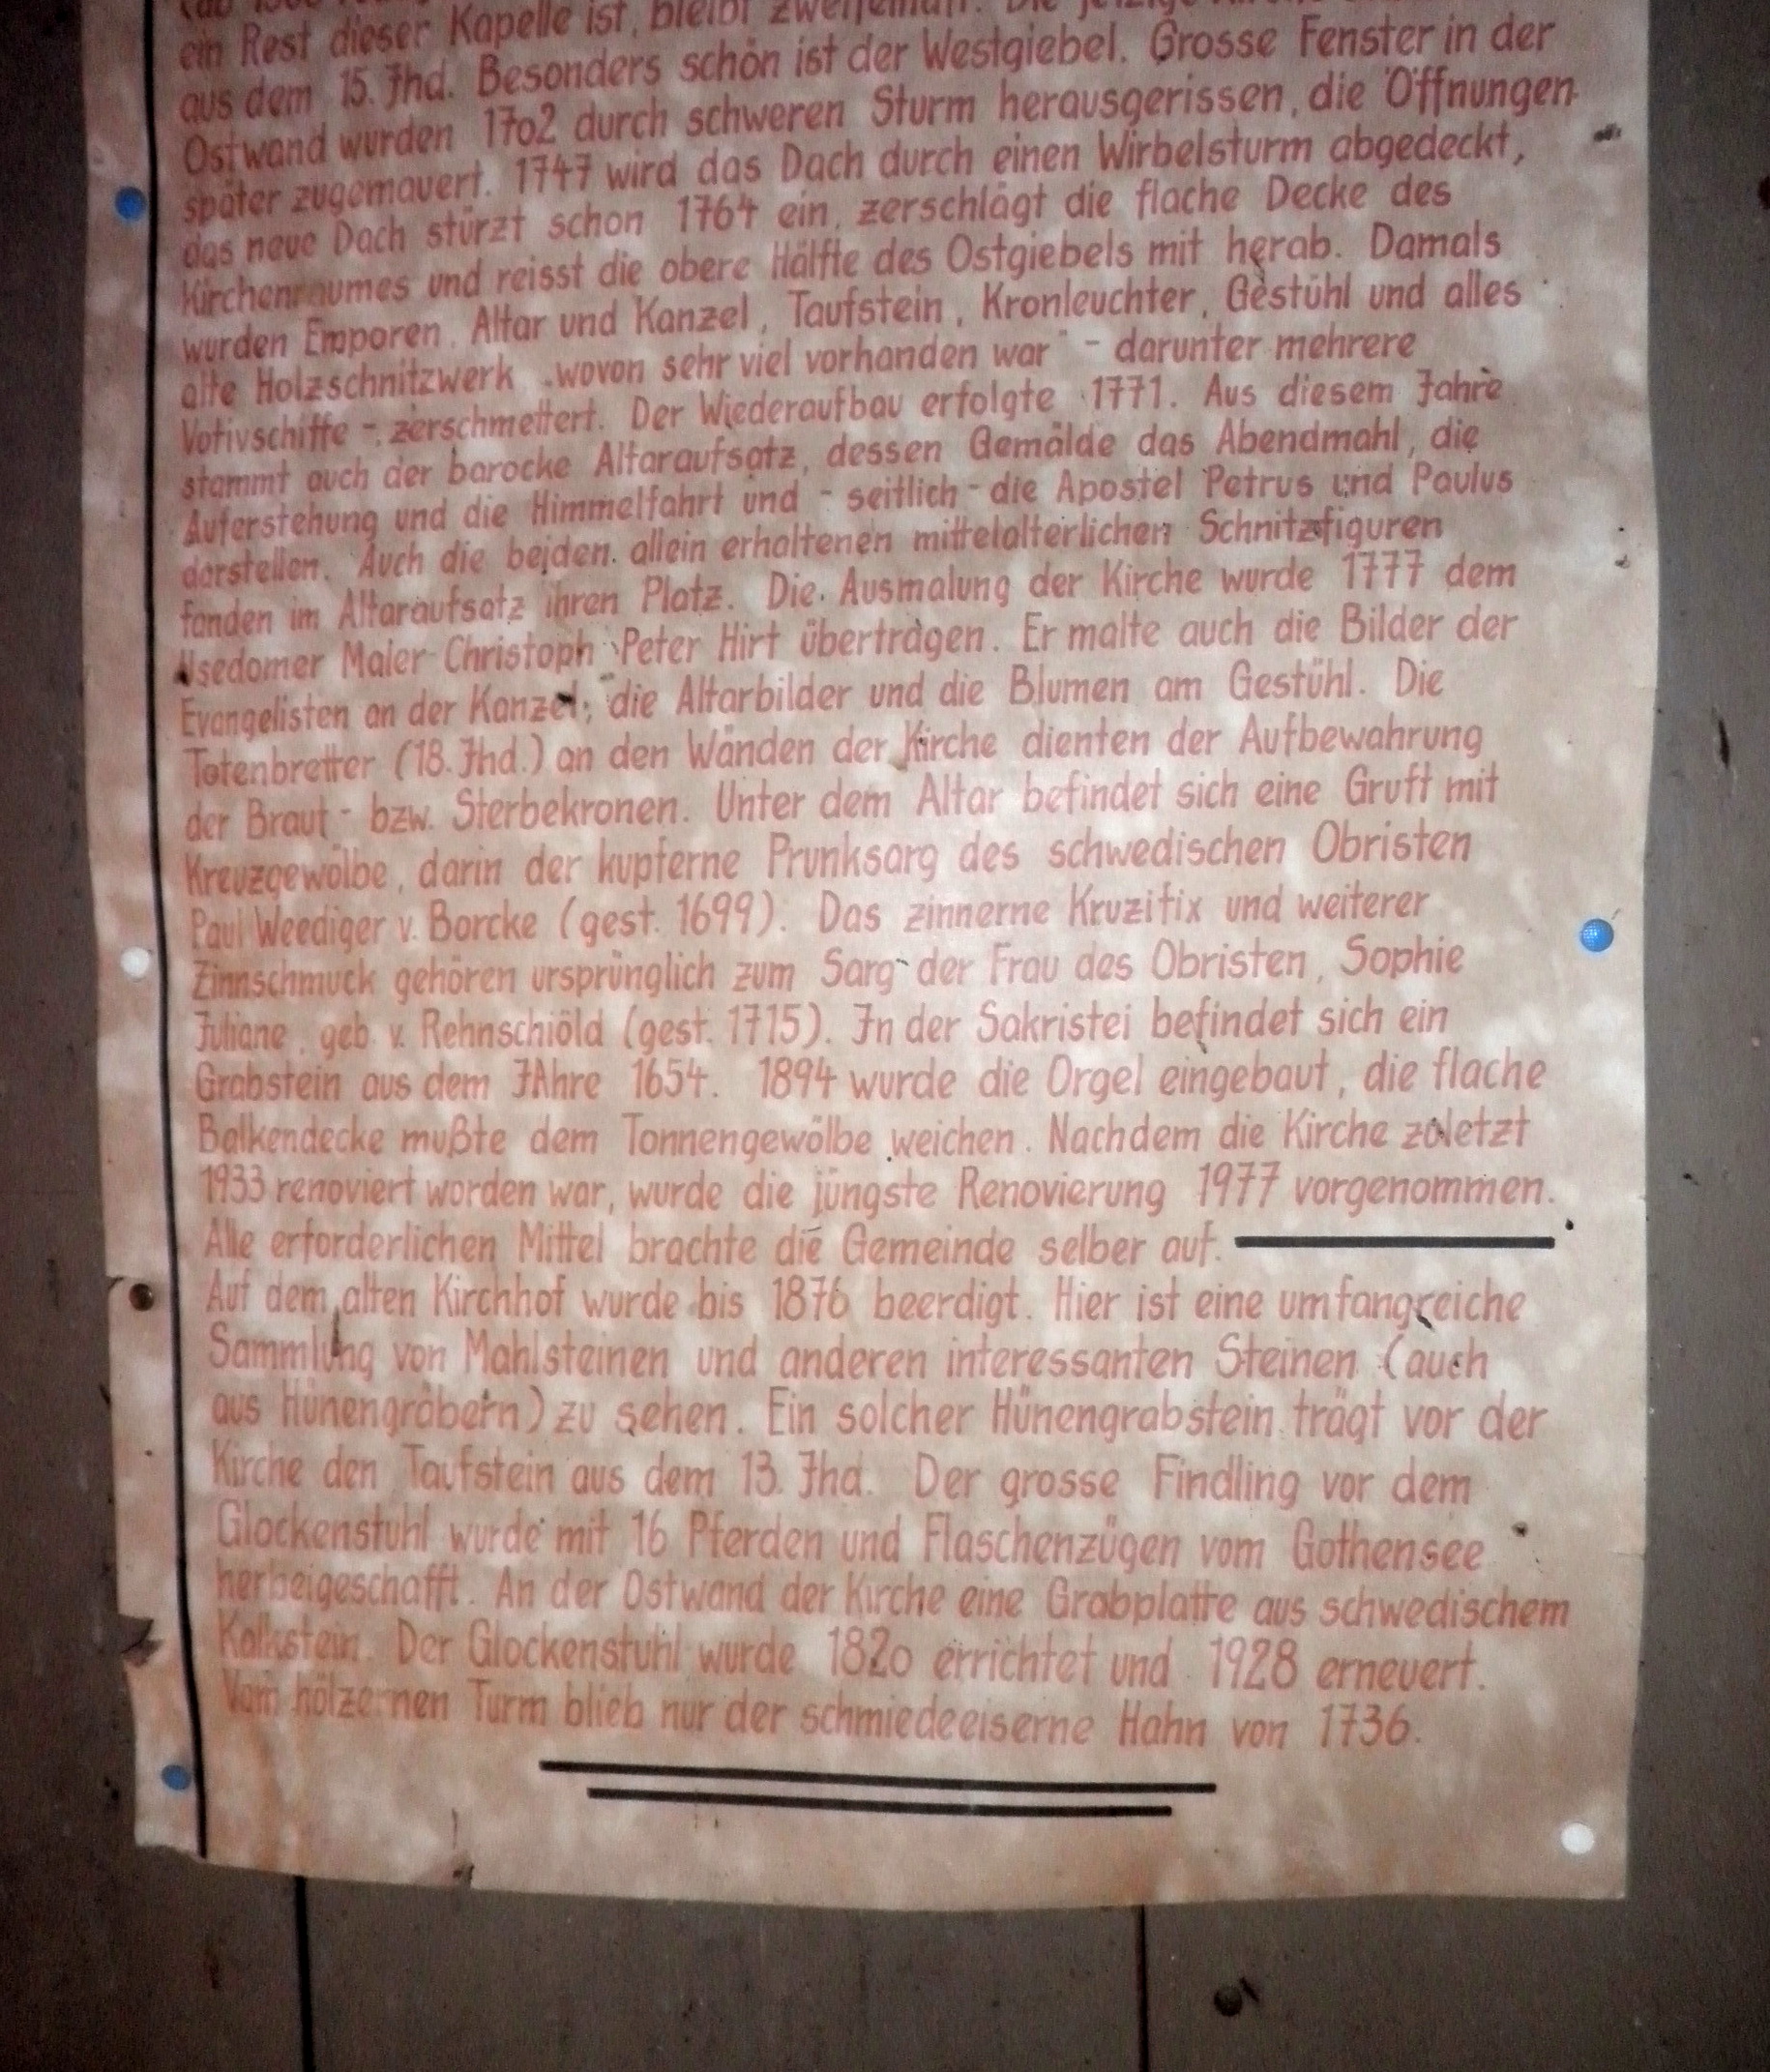 ein Rest dieser Kapelle ist, bleibt zweifelhaft. Die jetzige
aus dem 15. Jhd. Besonders schön ist der Westgiebel. Grosse Fenster in der
Ostwand wurden 1702 durch schweren Sturm herausgerissen, die Öffnungen
später zugemauert. 1747 wird das Dach durch einen Wirbelsturm abgedeckt,
das neue Dach stürzt schon 1764 ein, zerschlägt die flache Decke des
Kirchenraumes und reisst die obere Hälfte des Ostgiebels mit herab. Damals
wurden Emporen, Altar und Kanzel, Taufstein, Kronleuchter, Gestühl und alles
alte Holzschnitzwerk „wovon sehr viel vorhanden war" - darunter mehrere
Votivschiffe -, zerschmettert. Der Wiederaufbau erfolgte 1771. Aus diesem Jahre
stammt auch der barocke Altaraufsatz, dessen Gemälde das Abendmahl, die
Auferstehung und die Himmelfahrt und - seitlich - die Apostel Petrus und Paulus
darstellen. Auch die beiden allein erhaltenen mittelalterlichen Schnitzfiguren
fanden im Altaraufsatz ihren Platz. Die Ausmalung der Kirche wurde 1777 dem
Usedomer Maler Christoph Peter Hirt übertragen. Er malte auch die Bilder der
Evangelisten an der Kanzel, die Altarbilder und die Blumen am Gestühl. Die
Totenbretter (18. Jhd.) an den Wänden der Kirche dienten der Aufbewahrung
der Braut- bzw. Sterbekronen. Unter dem Altar befindet sich eine Gruft mit
Kreuzgewölbe, darin der kupferne Prunksarg des schwedischen Obristen
Paul Weediger v. Borcke (gest. 1699). Das zinnerne Kruzifix und weiterer
Zinnschmuck gehören ursprünglich zum Sarg der Frau des Obristen, Sophie
Juliane, geb. v. Rehnschiöld (gest. 1715). In der Sakristei befindet sich ein
Grabstein aus dem JAhre 1654. 1894 wurde die Orgel eingebaut, die flache
Balkendecke mußte dem Tonnengewölbe weichen. Nachdem die Kirche zuletzt
1933 renoviert worden war, wurde die jüngste Renovierung 1977 vorgenommen.
Alle erforderlichen Mittel brachte die Gemeinde selber auf.
Auf dem alten Kirchhof wurde bis 1876 beerdigt. Hier ist eine umfangreiche
Sammlung von Mahlsteinen und anderen interessanten Steinen (auch
aus Hünengräbern) zu sehen. Ein solcher Hünengrabstein trägt vor der
Kirche den Taufstein aus dem 13. Jhd. Der grosse Findling vor dem
Glockenstuhl wurde mit 16 Pferden und Flaschenzügen vom Gothensee
herbeigeschafft. An der Ostwand der Kirche eine Grabplatte aus schwedischem
Kalkstein. Der Glockenstuhl wurde 1820 errichtet und 1928 erneuert.
Vom hölzernen Turm blieb nur der schmiedeeiserne Hahn von 1736.